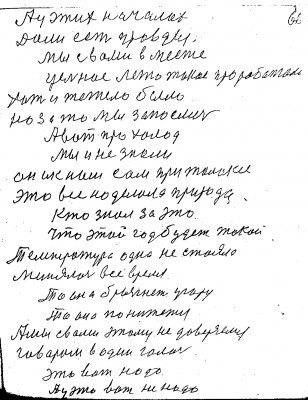 А у этих началах
Дали сот правды
мы свами вместе
целное лето такое проработали
хоть и тежело было
но за то мы запосли
А вот про холод
мы и не знали
он к нам сам
это все наделала природа
Кто знал за это
Что этой год будет такой
Температура одна не стояла
Минялас всё время
То она брыкнет угару
То она по нижет
А мы свами этому не доверяем
гаварым водин голас
это вот надо
А у это вот не надо